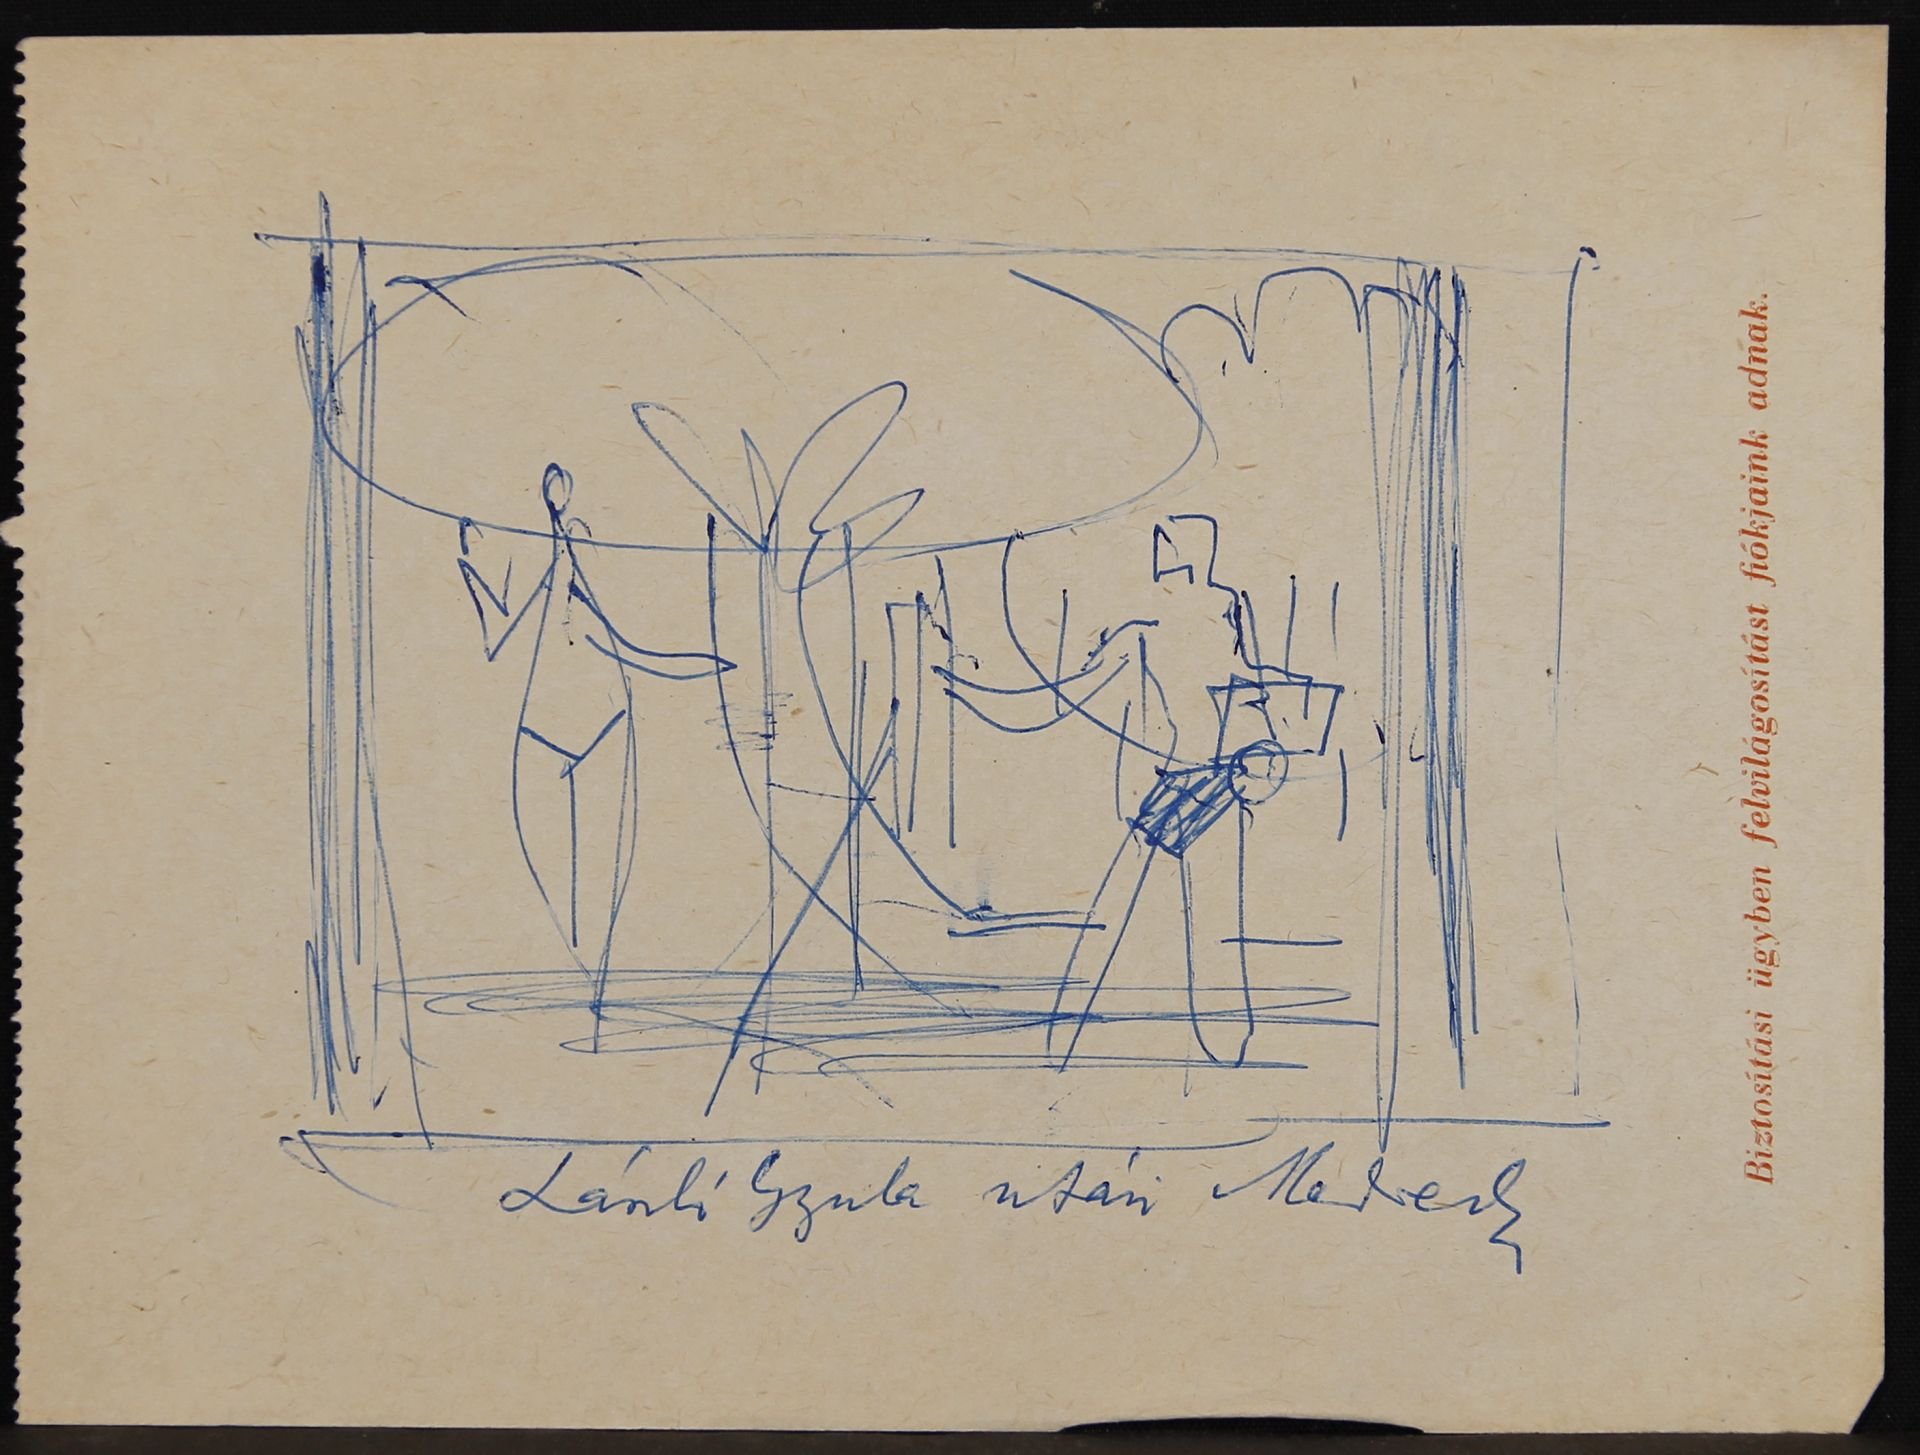 László Gyula után Medve
Biztosítási ügyben felvilágosítást fiókjaink adnak.